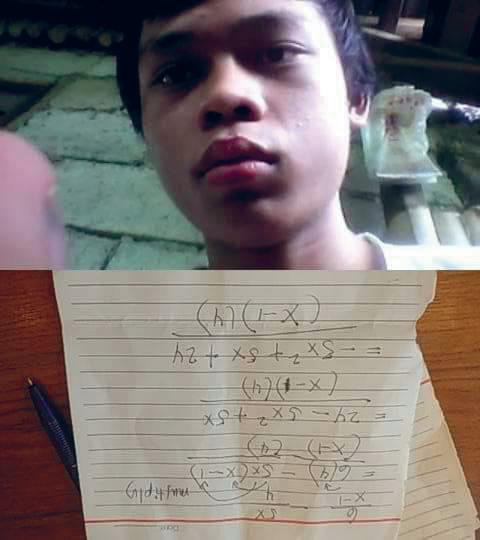 Date:
6/(x-1) - 5x/4 multiply
= 6(4) - 5x(x-1) / (x-1) (4)
= 24 - 5x² + 5x / (x-1)(4)
= -5x² + 5x + 24 / (x-1)(4)